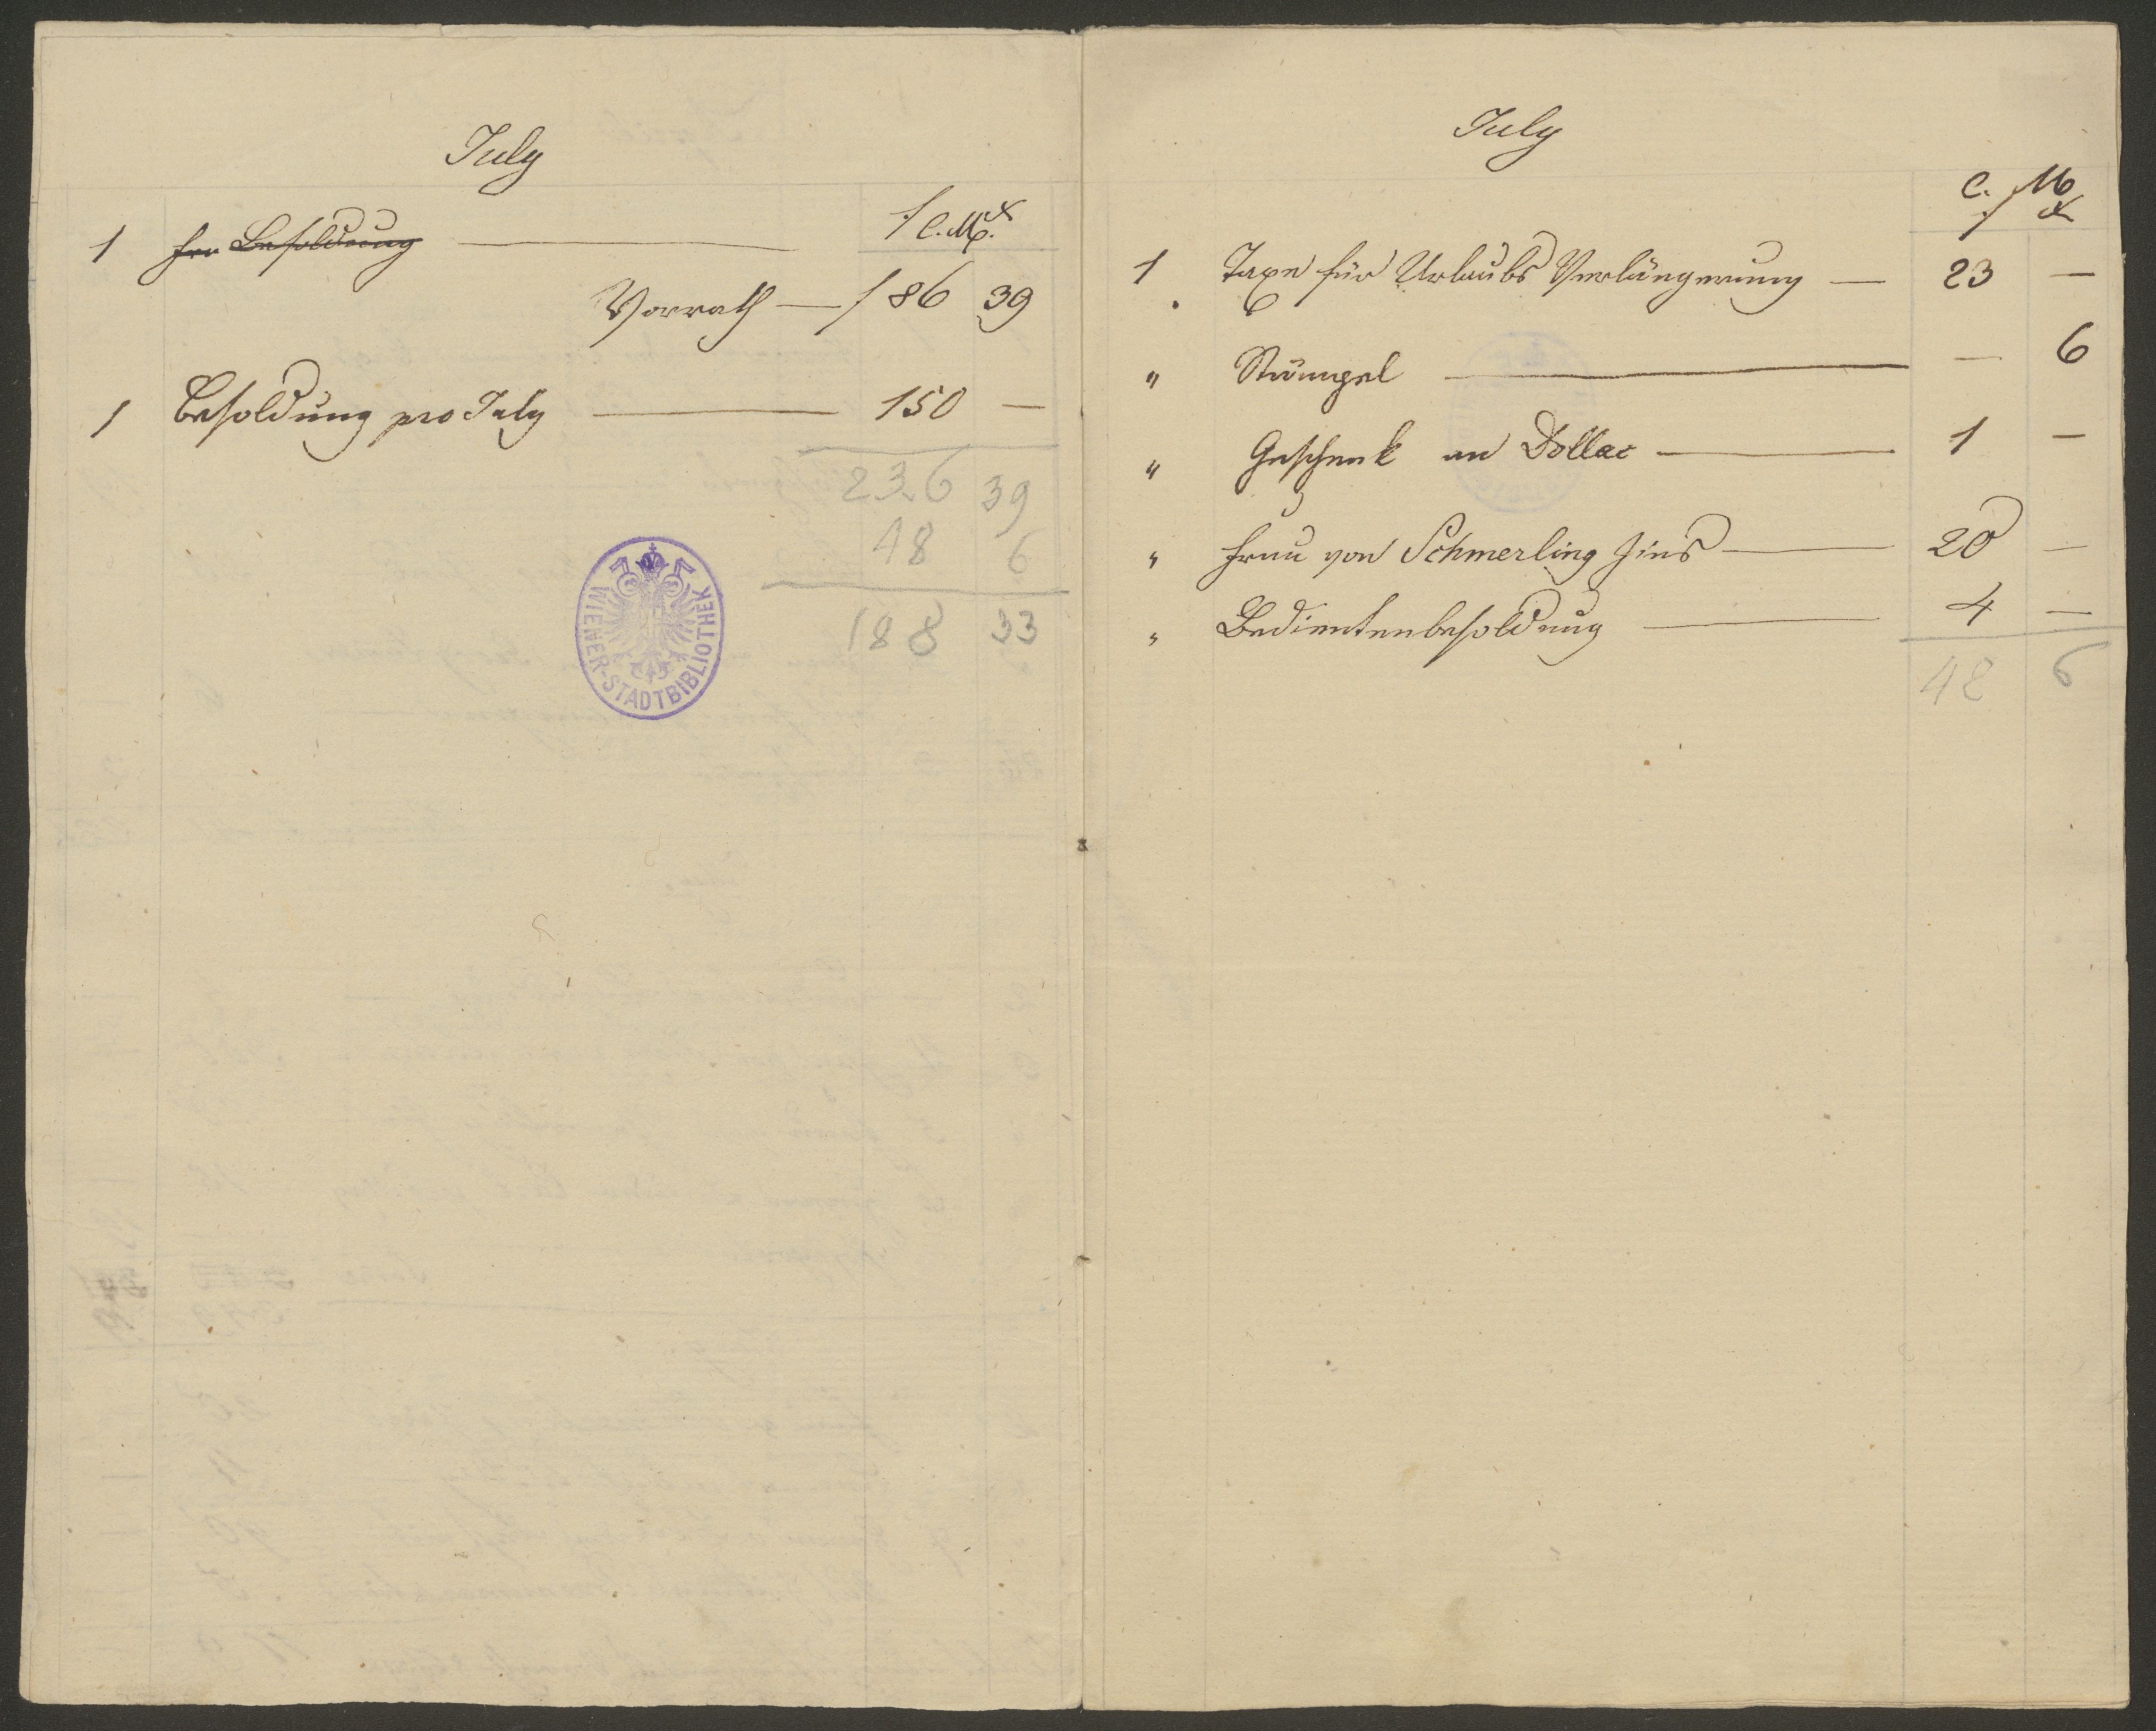 July
f C.M. x
1 Fra Besoldung
Vorrath — 86 39
1 Besoldung pro July — 150 —
236 39
48 6
188 33
WIENER-STADTBIBLIOTHEK
July
C. M
f x
1 Taxe für Urlaubs Verlängerung — 23 —
" Stämpel — — 6
" Geschenk an Dollac — 1 —
" Frau von Schmerling Zins — 20 —
" Bedientenbesoldung — 4 —
48 6